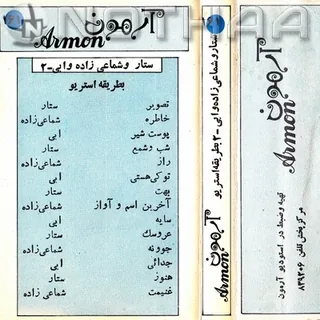 آرمون
Armon
ستار و شماعی زاده و ابی-۲
بطریقه استریو
تصویر ستار
خاطره شماعی زاده
پوست شیر ابی
شب و شمع ستار
راز شماعی زاده
تو کی هستی ابی
بهت ستار
آخرین اسم و آواز شماعی زاده
سایه ابی
عروسک ستار
جوونه شماعی زاده
جدائی ابی
هنوز ستار
غنیمت شماعی زاده
ستار و شماعی زاده و ابی -۲ بطریقه استریو
آرمون
Armon
آرمون
Armon
تهیه و ضبط در استودیو آرمون
مرکز پخش تلفن ۸۳۹۳۰۶